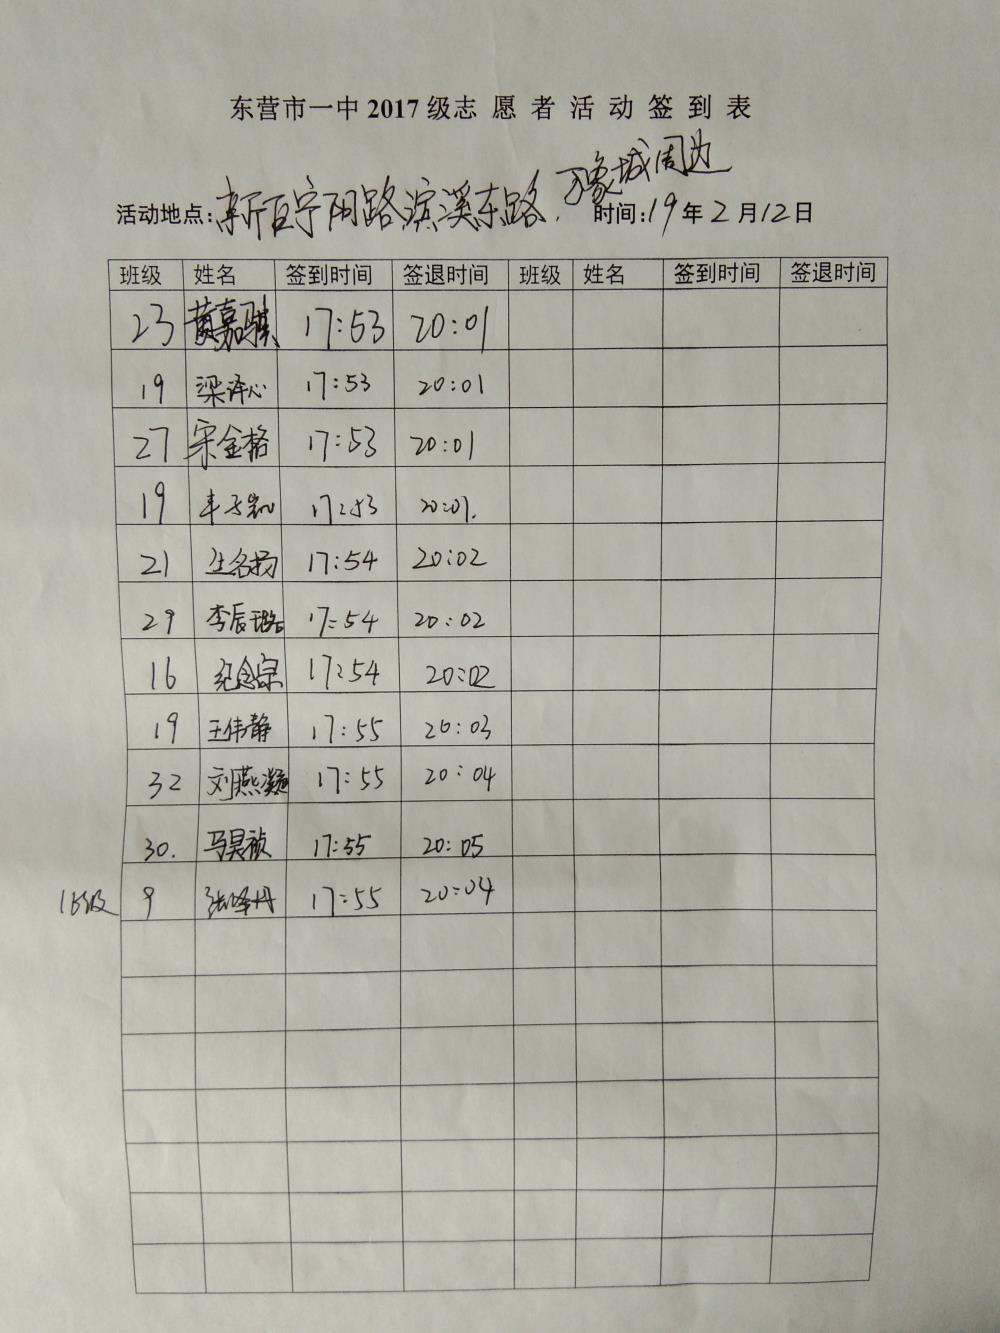 东营市一中2017级志愿者活动签到表
万象城周边
活动地点:新百宁阳路滨溪东路. 时间:19年2月12日
班级 姓名 签到时间 签退时间 班级 姓名 签到时间 签退时间
23 黄嘉骐 17:53 20:01
19 梁泽心 17:53 20:01
27 宋金格 17:53 20:01
19 17:53 20:01.
21 生名扬 17:54 20:02
29 李辰璐 17:54 20:02
16 纪念宗 17:54 20:02
19 王伟静 17:55 20:03
32 刘燕凝 17:55 20:04
30. 马昊祯 17:55 20:05
级 9 张泽丹 17:55 20:04